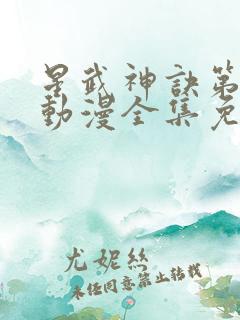 星武神訣第
動漫全集免
尤妮絲
未经同意禁止转载